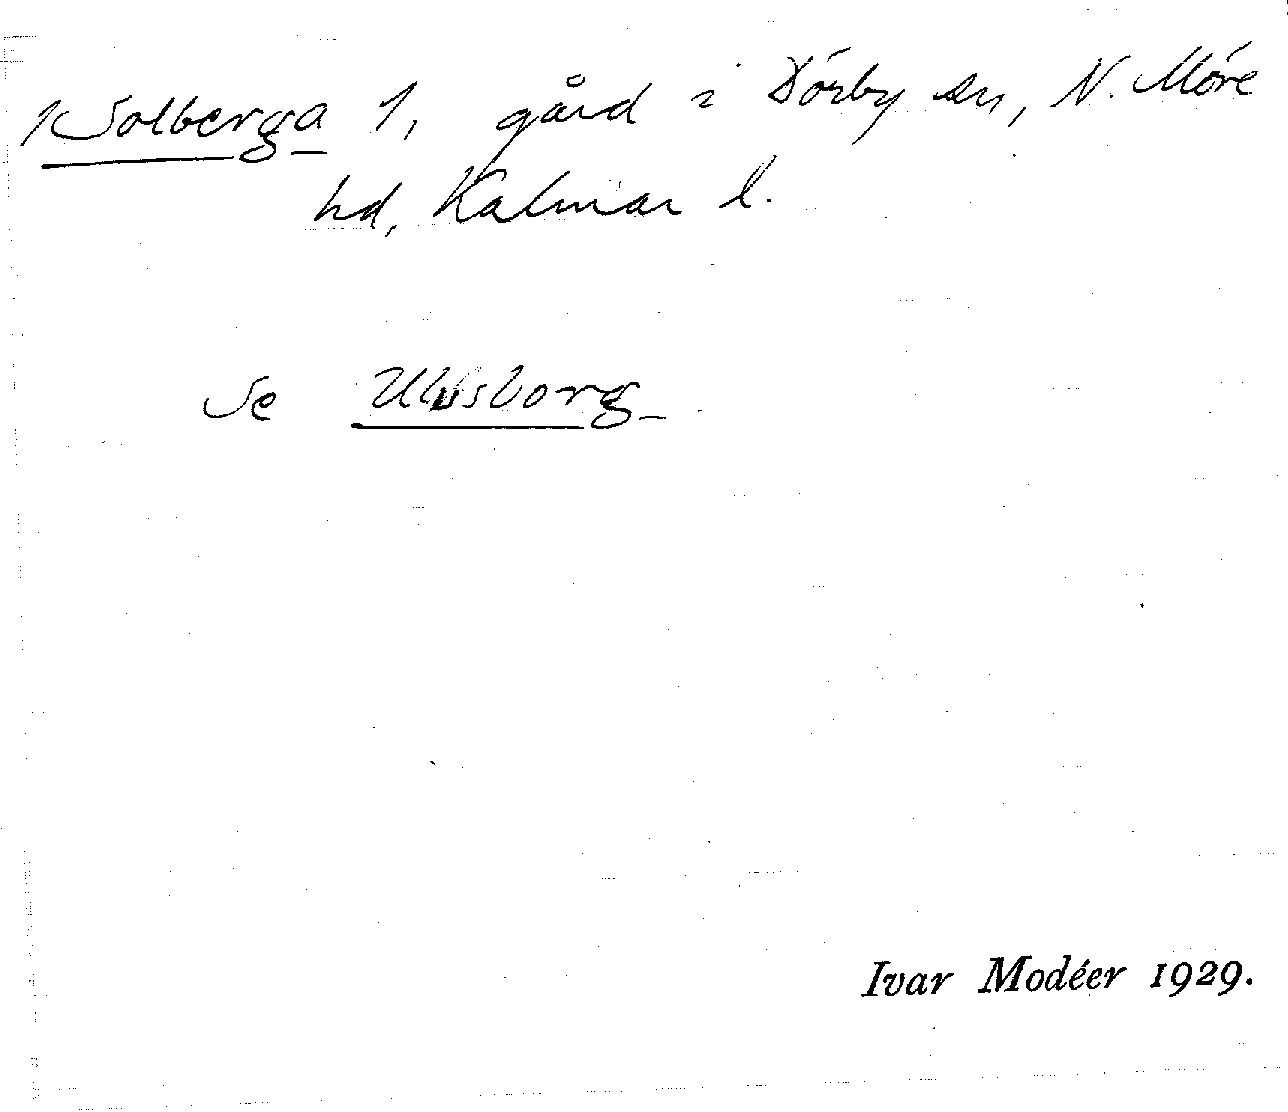 Solberga 1, gård i Dörby sn, N. Möre
hd, Kalmar l.
Se Ulvsborg
Ivar Modéer 1929.